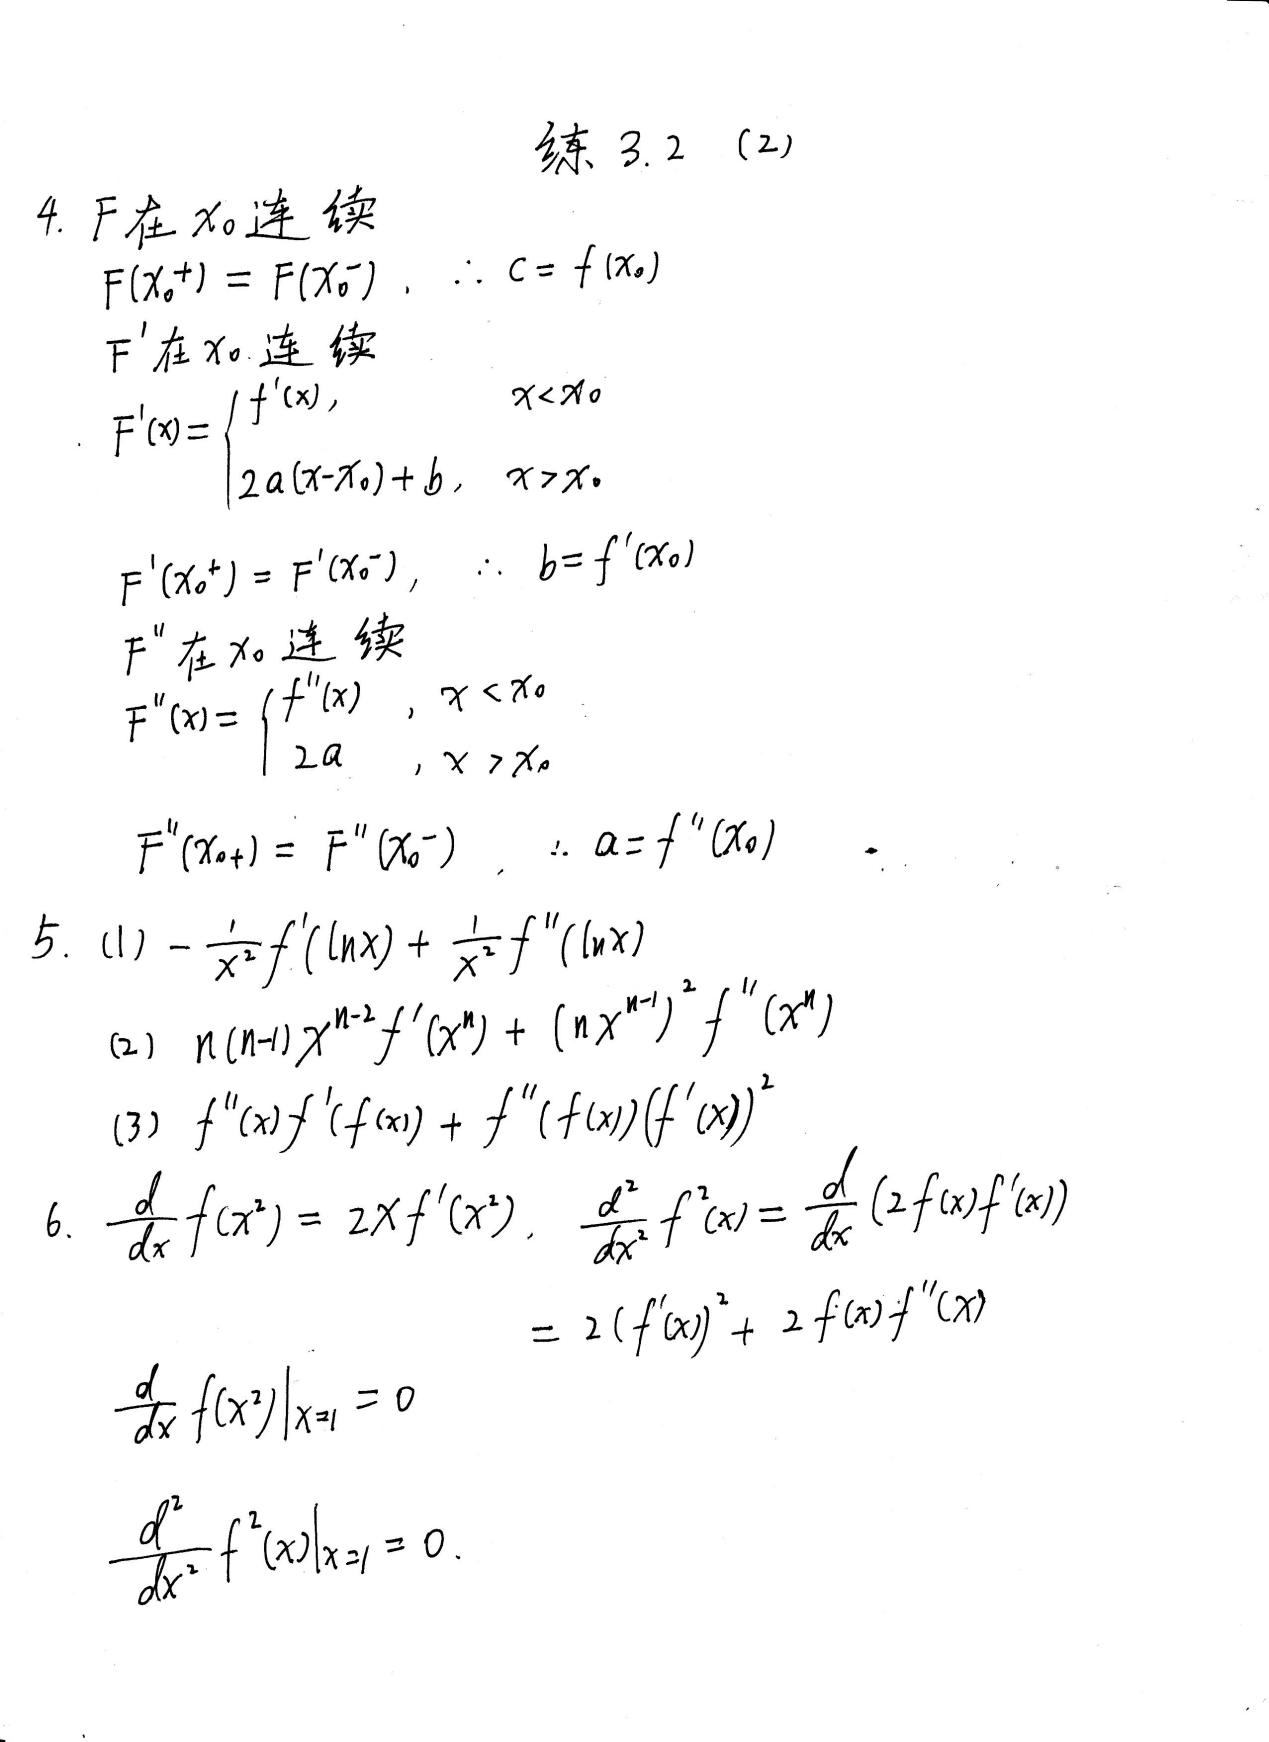 练 3.2 (2)
4. F在 x₀ 连续
F(x₀⁺) = F(x₀⁻), ∴ c = f(x₀)
F'在 x₀ 连续
F'(x) = { f'(x), x < x₀
2a(x-x₀)+b, x > x₀
F'(x₀⁺) = F'(x₀⁻), ∴ b = f'(x₀)
F"在 x₀ 连续
F"(x) = { f"(x), x < x₀
2a, x > x₀
F"(x₀₊) = F"(x₀⁻), ∴ a = f"(x₀)
5. (1) - 1/x² f'(lnx) + 1/x² f"(lnx)
(2) n(n-1)xⁿ⁻² f'(xⁿ) + (nxⁿ⁻¹)² f"(xⁿ)
(3) f"(x)f'(f(x)) + f"(f(x))(f'(x))²
6. d/dx f(x²) = 2xf'(x²), d²/dx² f²(x) = d/dx (2f(x)f'(x))
= 2(f'(x))² + 2f(x)f"(x)
d/dx f(x²)|x=1 = 0
d²/dx² f²(x)|x=1 = 0.